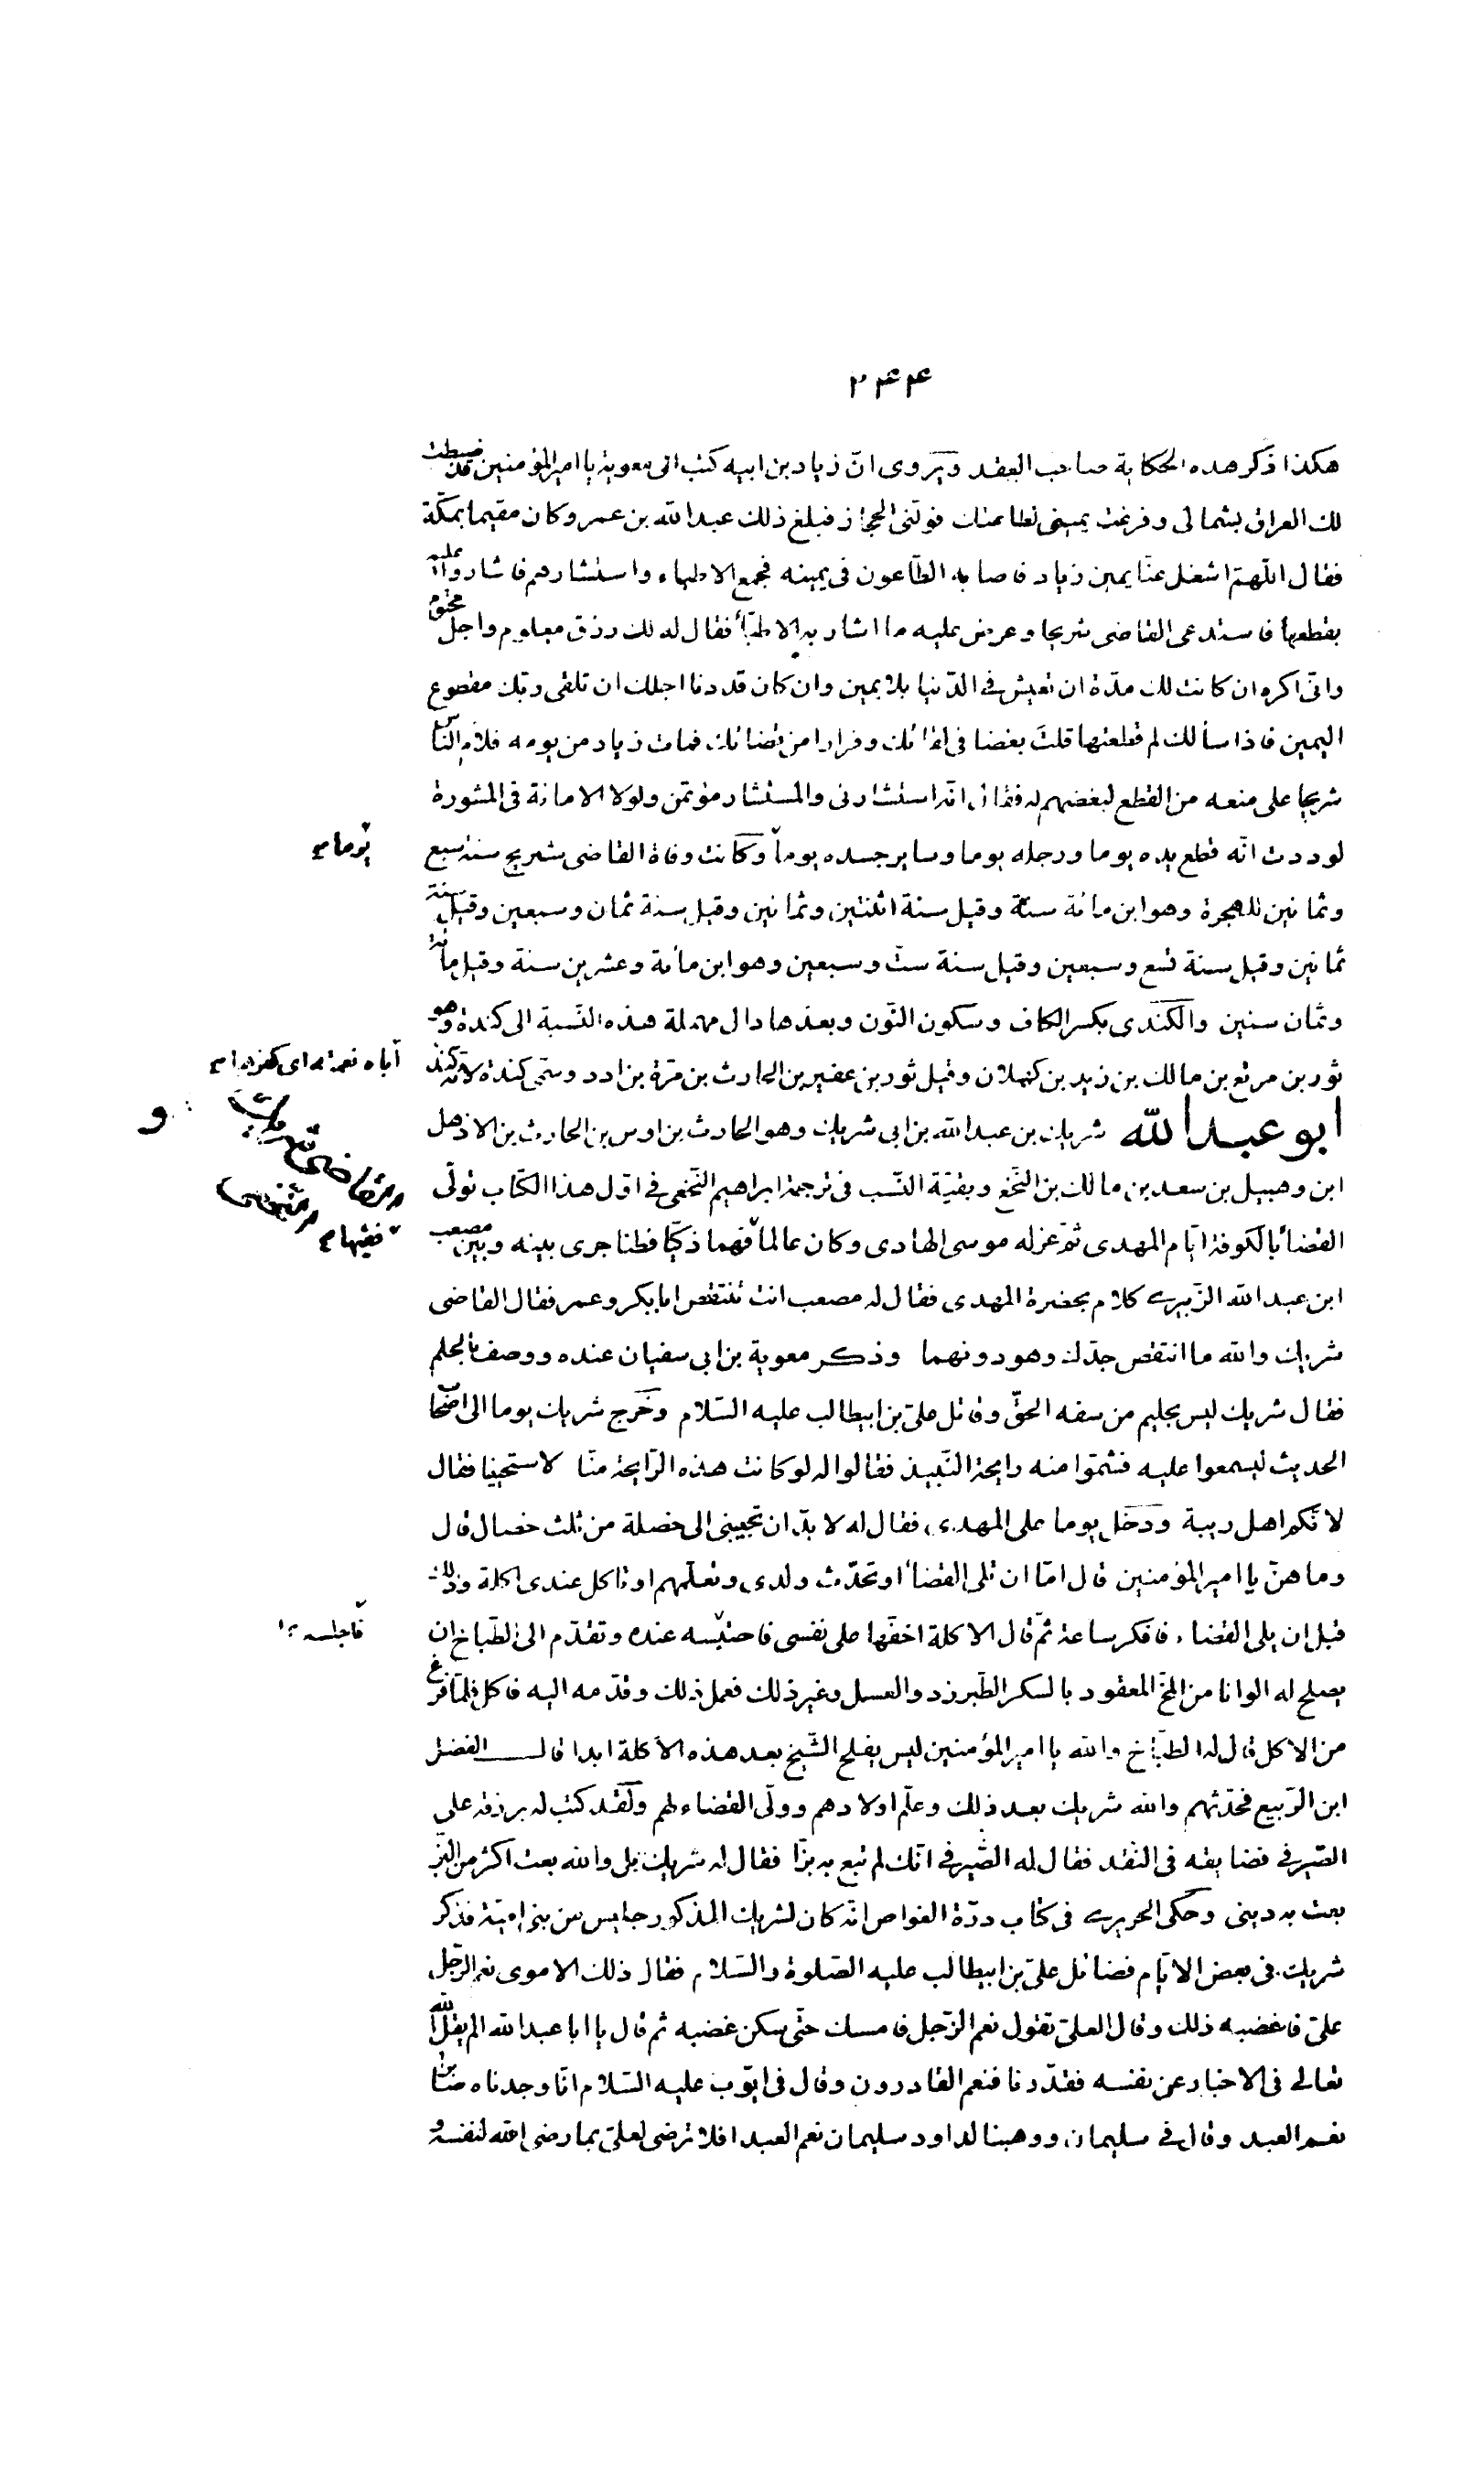 ۲۴۴
هكذا ذكر هذه الحكاية صاحب العقد ويروى انّ زياد بن ابيه كتب الى معوية يا امير المؤمنين قد ضبطت
لك العراق بشمالى وفرغت يمينى لطاعتك فولّنى الحجاز فبلغ ذلك عبد الله بن عمر وكان مقيما بمكّة
فقال اللّهمّ اشغل عنّا يمين زياد فاصابه الطّاعون فى يمينه فجمع الاطباء واستشارهم فاشاروا عليه
بقطعها فاستدعى القاضى شريحا وعرض عليه ما اشار به الاطبّأ فقال له لك رزق معلوم واجل محتوم
وانّى اكره ان كانت لك مدّة ان تعيش فى الدّنيا بلا يمين وان كان قد دنا اجلك ان تلقى ربّك مقطوع
اليمين فاذا سألك لم قطعتها قلت بغضا فى لقائك وفرارا من قضائك فمات زياد من يومه فلام النّاس
شريحا على منعه من القطع لبغضهم له فقال انّه استشارنى والمستشار مؤتمن ولولا الامانة فى المشورة
لوددت انّه قطع يده يوما ورجله يوما وساير جسده يوماً وكانت وفاة القاضى شريح سنة سبع
يوما م
وثمانين للهجرة وهو ابن مائة سنة وقيل سنة اثنتين وثمانين وقيل سنة ثمان وسبعين وقيل سنة
ثمانين وقيل سنة تسع وسبعين وقيل سنة ستّ وسبعين وهو ابن مائة وعشرين سنة وقيل مائة
وثمان سنين والكندى بكسر الكاف وسكون النّون وبعدها دال مهملة هذه النّسبة الى كندة وهو
ثور بن مرتع بن مالك بن زيد بن كهلان وقيل ثور بن عفير بن الحارث بن مرّة بن ادد وسمّى كندة لانّه كند
اباه نعمته اى كفرها م
ابو عبد الله شريك بن عبد الله بن ابى شريك وهو الحارث بن اوس بن الحارث بن الاذهل
القاضى شريك النخعى
ابن وهبيل بن سعد بن مالك بن النّخع وبقيّة النّسب فى ترجمة ابراهيم النّخعى فى اوّل هذا الكتاب تولّى
القضأ بالكوفة ايّام المهدى ثمّ عزله موسى الهادى وكان عالماً فهما ذكيّا فطنا جرى بينه وبين مصعب
فقيها م
ابن عبد الله الزّبيرى كلام بحضرة المهدى فقال له مصعب انت تنتقص ابا بكر وعمر فقال القاضى
شريك والله ما انتقص جدّك وهو دونهما وذكر معوية بن ابى سفيان عنده ووصف بالحلم
فقال شريك ليس بحليم من سفه الحقّ وقاتل علىّ بن ابيطالب عليه السّلام وخرج شريك يوما الى اصحاب
الحديث ليسمعوا عليه فشمّوا منه رايحة النّبيذ فقالوا له لو كانت هذه الرّايحة منّا لاستحيينا فقال
لانّكم اهل ريبة ودخل يوما على المهدى فقال له لا بدّ ان تجيبنى الى خصلة من ثلث خصال قال
وما هنّ يا امير المؤمنين قال امّا ان تلى القضأ او تحدّث ولدى وتعلّمهم او تاكل عندى اكلة وذلك
قبل ان يلى القضاء فافكر ساعة ثمّ قال الاكلة اخفّها على نفسى فاحتبسه عنده وتقدّم الى الطّباخ ان
فاجلسه
يصلح له الوانا من المخّ المعقود بالسكر الطّبرزد والعسل وغير ذلك فعمل ذلك وقدّمه اليه فاكل فلمّا فرغ
من الاكل قال له الطّبّاخ والله يا امير المؤمنين ليس يفلح الشّيخ بعد هذه الاكلة ابدا قال الفضل
ابن الرّبيع فحدّثهم والله شريك بعد ذلك وعلّم اولادهم وولّى القضاء لهم ولقد كتب له برزقه على
الصّيرفى فضايقه فى النّقد فقال له الصّيرفى انّك لم تبع به بزّا فقال له شريك بلى والله بعت اكثر من البزّ
بعت به دينى وحكى الحريرى فى كتاب درّة الغواص انّه كان لشريك المذكور جليس من بنى اميّة فذكر
شريك فى بعض الايّام فضائل علىّ بن ابيطالب عليه الصّلوة والسّلام فقال ذلك الاموى نعم الرّجل
علىّ فاغضبه ذلك وقال العلىّ تقول نعم الرّجل فامسك حتّى سكن غضبه ثم قال يا ابا عبد الله الم يقل الله
تعالى فى الاخبار عن نفسه فقدّرنا فنعم القادرون وقال فى ايّوب عليه السّلام انّا وجدناه صابرا
نعم العبد وقال فى سليمان ووهبنا لداود سليمان نعم العبد افلا ترضى لعلىّ بما رضى الله لنفسه و